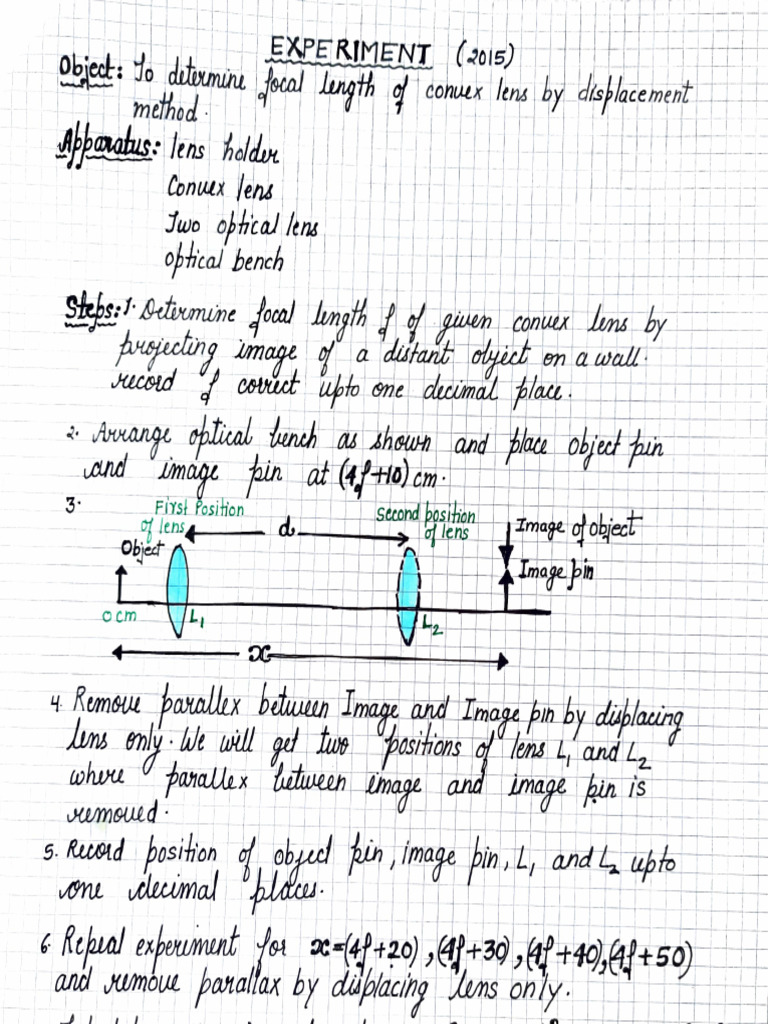 EXPERIMENT (2015)
Object: To determine focal length of convex lens by displacement
method.
Apparatus: lens holder
Convex lens
Two optical lens
optical bench
Steps: 1. Determine focal length f of given convex lens by
projecting image of a distant object on a wall.
record f correct upto one decimal place.
2. Arrange optical bench as shown and place object pin
and image pin at (4f+10) cm.
3.
First Position
of lens
d
Second position
of lens
Image of object
Object
Image pin
0 cm
L1
L2
x
4. Remove parallex between Image and Image pin by displacing
lens only. We will get two positions of lens L1 and L2
where parallex between image and image pin is
removed.
5. Record position of object pin, image pin, L1 and L2 upto
one decimal places.
6. Repeal experiment for x=(4f+20), (4f+30), (4f+40), (4f+50)
and remove parallax by displacing lens only.